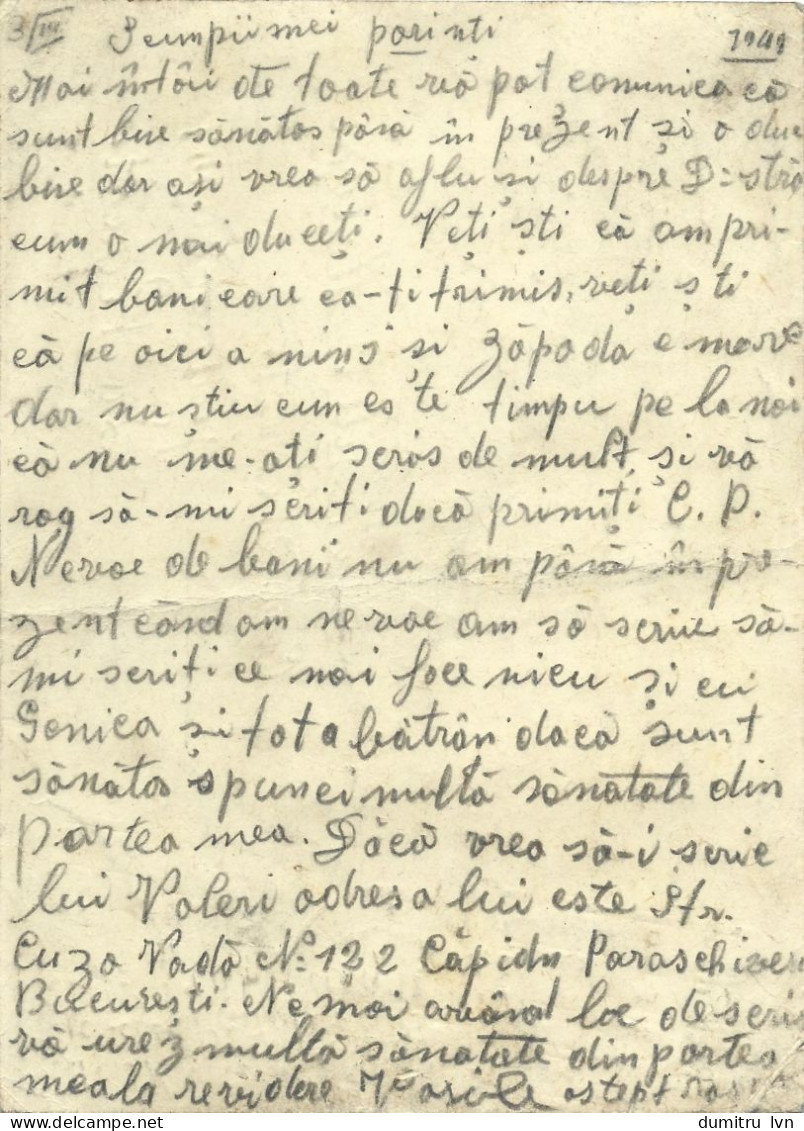 3/III Scumpii mei parinti 1941
Mai întâi de toate vă pot comunica că
sunt bine sănătos până în prezent și o duc
bine dar ași vrea să aflu și despre D=stră
cum o mai duceți. Veți ști că am pri-
mit bani care ca-ți trimis, veți ști
că pe aici a nins și zăpada e mare
dar nu știu cum este timpu pe la noi
că nu me-ați scris de mult și vă
rog să-mi scriți dacă primiți C. P.
Nevoe de bani nu am până în pre-
zent când am nevoe am să scriu să-
mi scriți ce mai face nicu și cu
Gonica și tata bătrân dacă sunt
sănătos spunei multă sănatate din
partea mea. Dăcă vrea să-i scrie
lui Valeri adresa lui este Str.
Cuza Vodă No 122 Căpidu
București. Ne mai având loc de scris
vă urez multă sănatate din partea
mea la revidere Vasile astept
dumitru_lvn